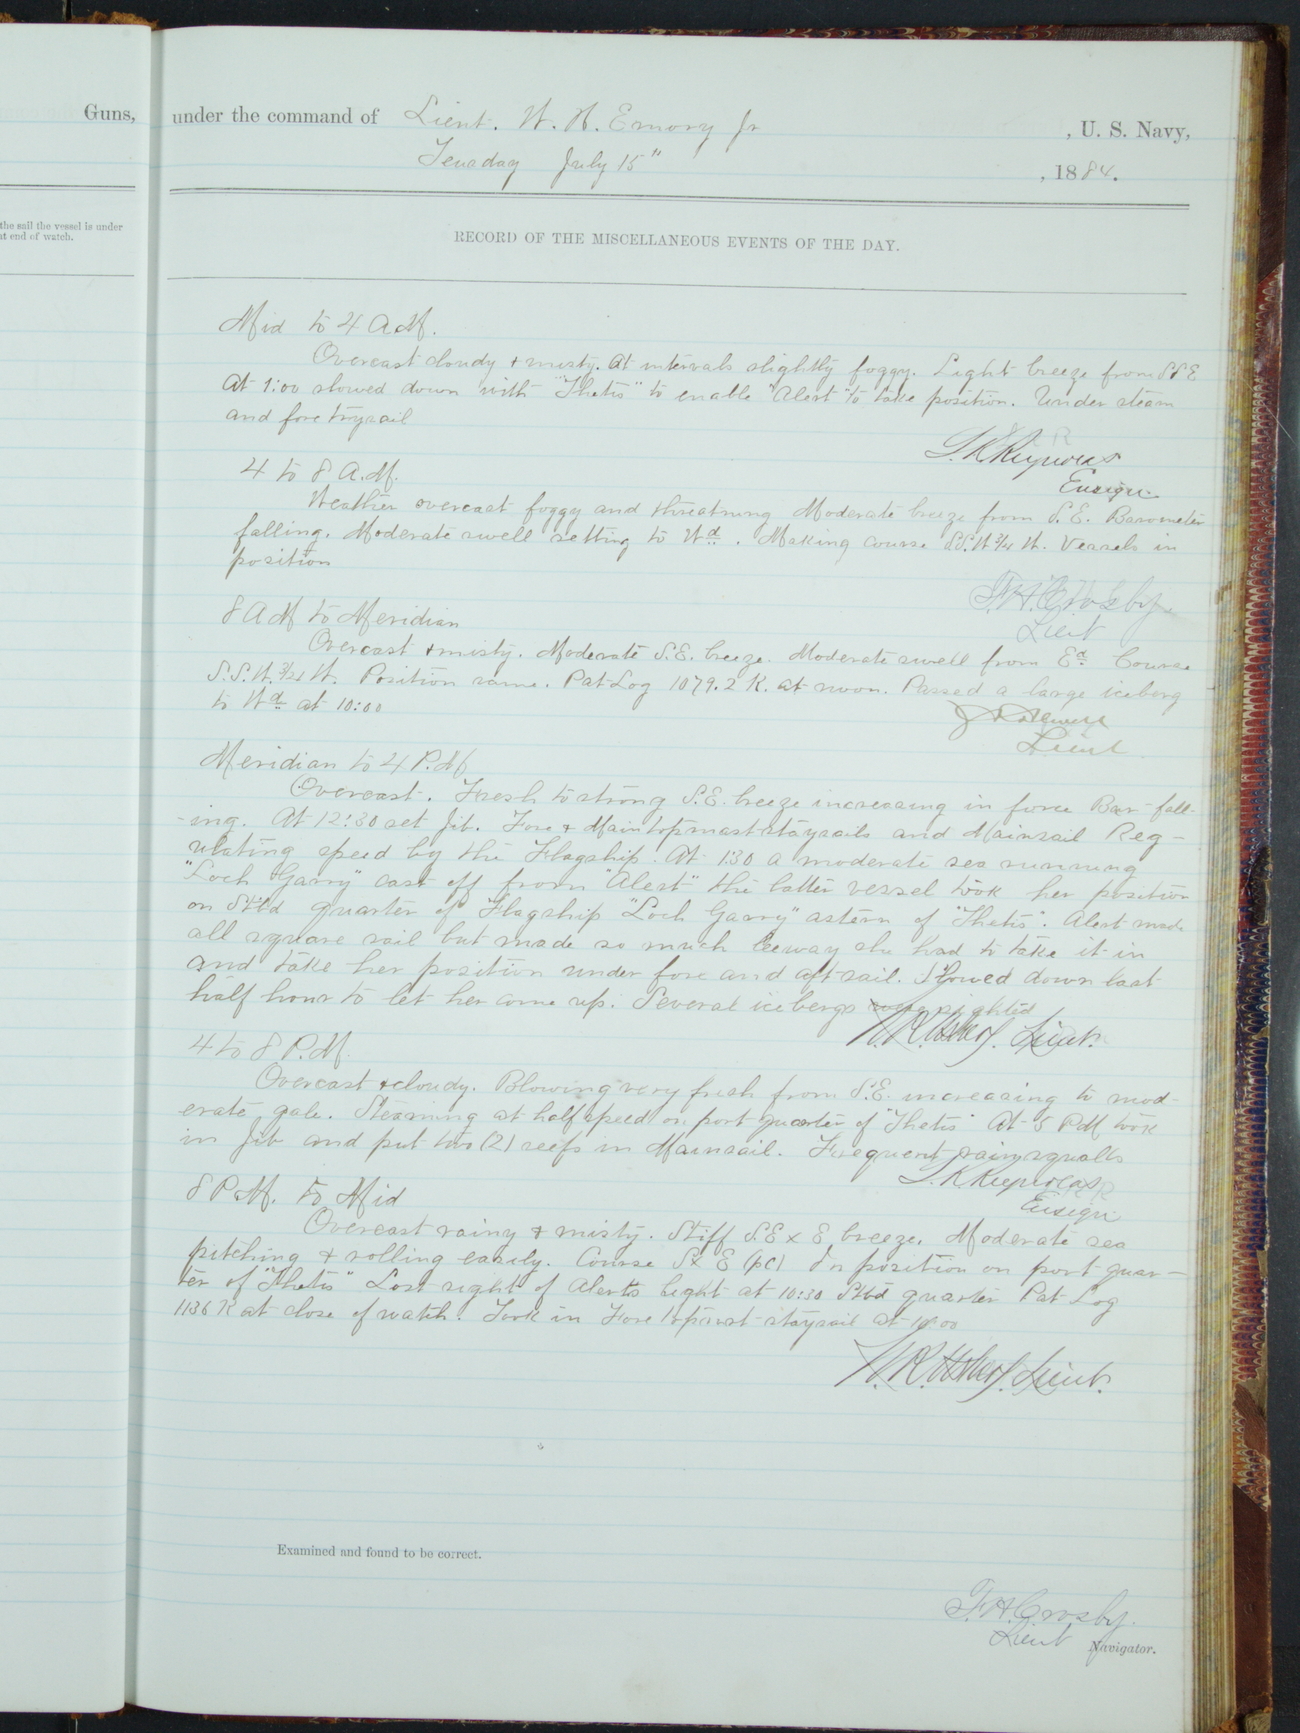 Guns,
under the command of Lieut. W. H. Emory Jr , U. S. Navy,
Tuesday July 15" , 1884.
the sail the vessel is under
at end of watch.
RECORD OF THE MISCELLANEOUS EVENTS OF THE DAY.
Mid to 4 A.M.
Overcast cloudy & misty. At intervals slightly foggy. Light breeze from SSE
At 1:00 slowed down with "Thetis" to enable "Alert" to take position. Under steam
and fore trysail
L. K. Reynolds
Ensign
4 to 8 A.M.
Weather overcast foggy and threatning Moderate breeze from S.E. Barometer
falling. Moderate swell setting to Wd. Making course SS.W 3/4 W. Vessels in
position
F. H. Crosby
Lieut
8 AM to Meridian
Overcast & misty. Moderate S.E. breeze. Moderate swell from Ed. Course
S.S.W. 3/4 W. Position same. Pat Log 1079.2 K. at noon. Passed a large iceberg
to Wd at 10:00
Lieut
Meridian to 4 P.M
Overcast. Fresh to strong S.E. breeze increasing in force Bar- fall-
-ing. At 12:30 set Jib. Fore & Main topmast staysails and Mainsail Reg-
ulating speed by the Flagship. At 1:30 a moderate sea running
"Loch Garry" cast off from "Alert" the latter vessel took her position
on Stbd quarter of Flagship "Loch Garry" astern of "Thetis". Alert made
all square sail but made so much leeway she had to take it in
and take her position under fore and aft sail. Slowed down last
half hour to let her come up. Several icebergs were sighted
Lieut.
4 to 8 P.M.
Overcast & cloudy. Blowing very fresh from S.E. increasing to mod-
erate gale. Steaming at half speed on port quarter of "Thetis" At 5 PM took
in Jib and put two (2) reefs in Mainsail. Frequent rain squalls
L. K. Reynolds
Ensign
8 P.M. to Mid
Overcast rainy & misty. Stiff S.E x E breeze. Moderate sea
pitching & rolling easily. Course S x E (pc) In position on port quar-
ter of "Thetis" Lost sight of Alerts light at 10:30 Stbd quarter Pat Log
1136 K at close of watch. Took in Fore topmast staysail at 10:00
Lieut.
Examined and found to be correct.
F. H. Crosby.
Lieut Navigator.